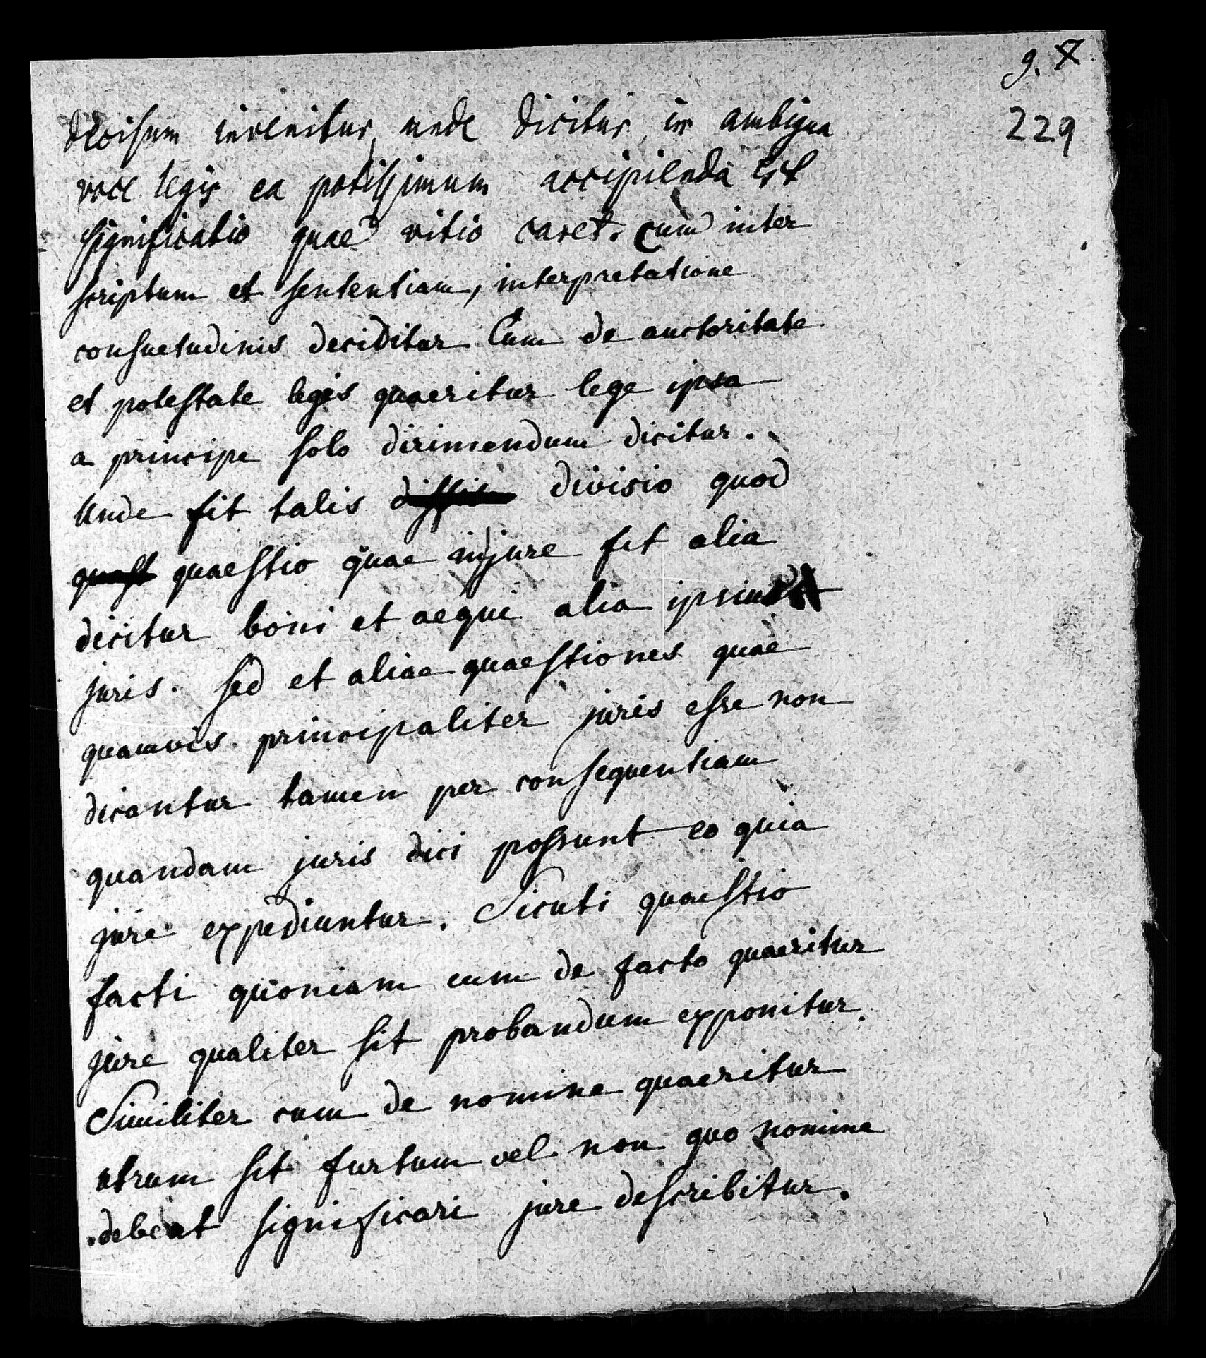 9. X
229
decisum invenitur, unde dicitur in ambigua
voce legis ea potissimum accipienda est
significatio quae vitio caret. Cum inter
scriptum et sententiam, interpretatione
consuetudinis deciditur Cum de auctoritate
et potestate legis quaeritur lege ipsa
a principe solo dirimendum dicitur.
Unde fit talis divisio quod
quaest quaestio quae in jure fit alia
dicitur boni et aequi alia ipsius
juris. sed et aliae quaestiones quae
quamvis principaliter juris esse non
dicantur tamen per consequentiam
quandam juris dici possunt eo quia
jure expediuntur. Sicuti quaestio
facti quoniam cum de facto quaeritur
jure qualiter sit probandum exponitur.
Similiter cum de nomine quaeritur
utrum sit furtum vel non quo nomine
debeat significari jure describitur.